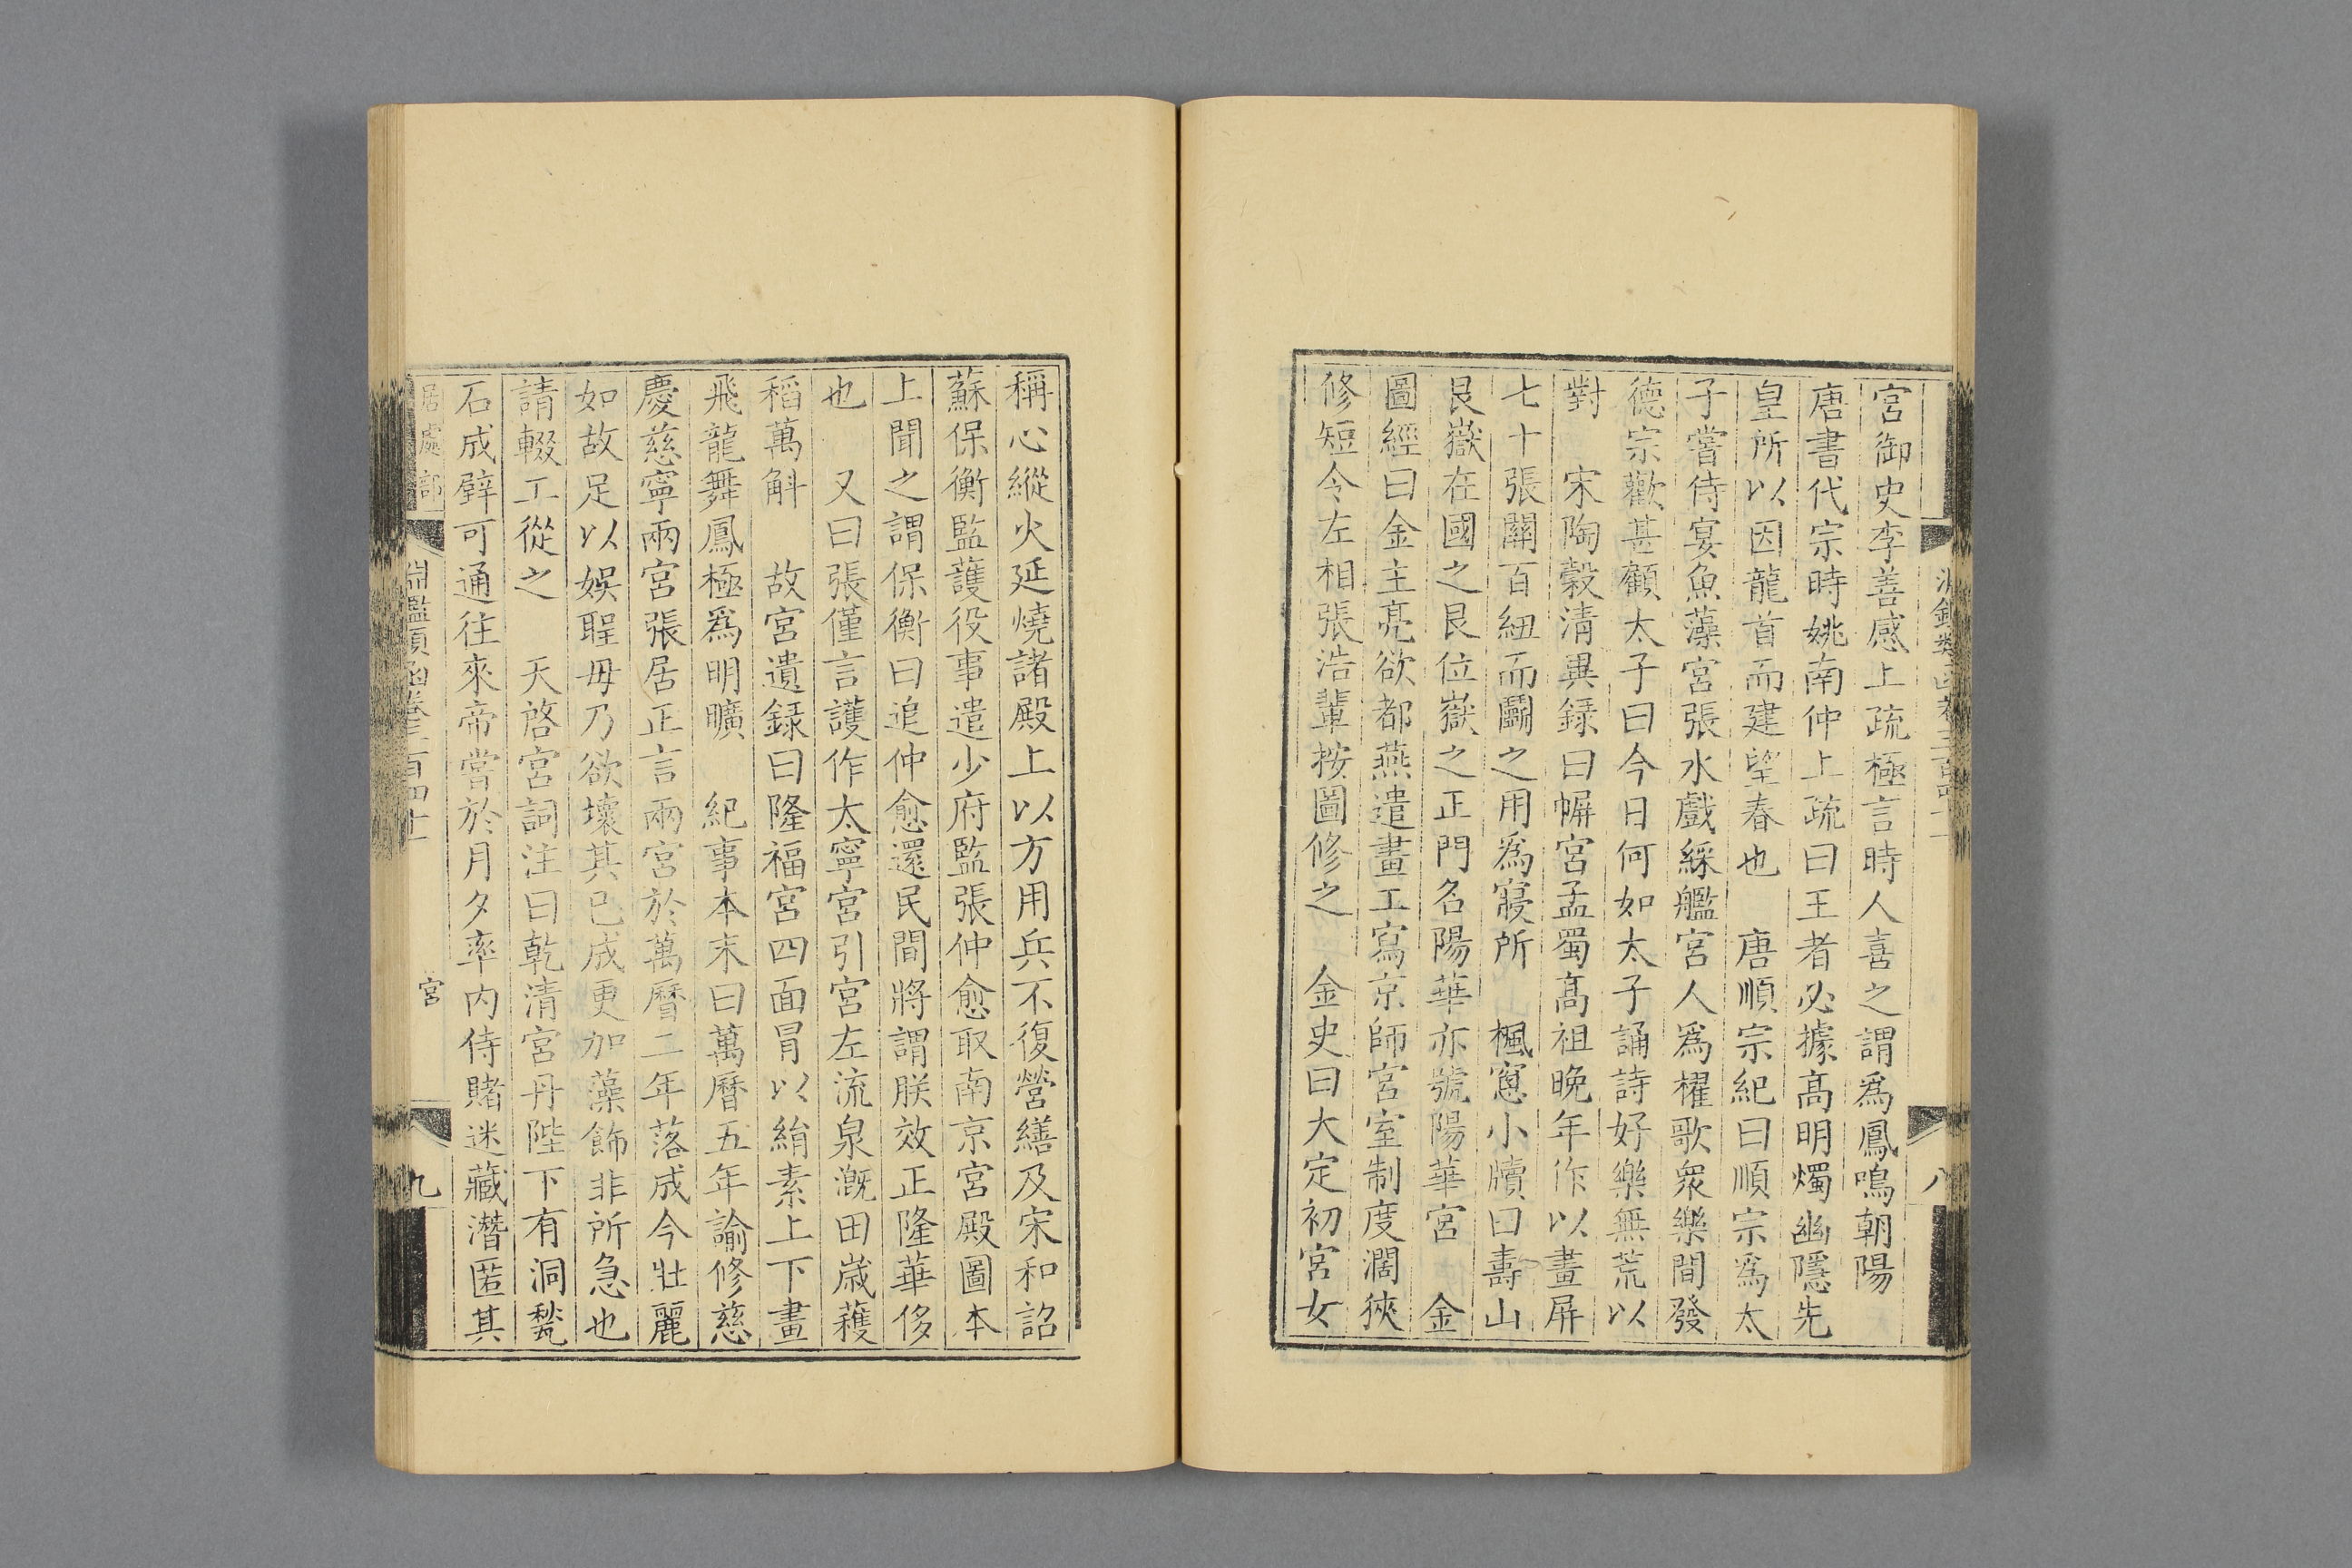 宮御史李善感上疏極言時人喜之謂爲鳳鳴朝陽
唐書代宗時姚南仲上疏曰王者必據高明燭幽隱先
皇所以因龍首而建望春也　唐順宗紀曰順宗爲太
子嘗侍宴魚藻宮張水戲綵艦宮人爲櫂歌衆樂間發
德宗歡甚顧太子曰今日何如太子誦詩好樂無荒以
對　宋陶穀清異録曰幈宮孟蜀髙祖晚年作以畫屏
七十張關百紐而鬭之用爲寢所　楓窻小牘曰壽山
艮嶽在國之艮位嶽之正門名陽華亦號陽華宮　金
圖經曰金主亮欲都燕遣畫工寫京師宮室制度濶狹
修短令左相張浩輩按圖修之　金史曰大定初宮女
稱心縱火延燒諸殿上以方用兵不復營繕及宋和詔
蘇保衡監護役事遣少府監張仲愈取南京宮殿圖本
上聞之謂保衡曰追仲愈還民間將謂朕效正隆華侈
也　又曰張僅言護作太寧宮引宮左流泉漑田歲穫
稻萬斛　故宮遺録曰隆福宮四面冒以絹素上下畫
飛龍舞鳳極爲明曠　紀事本末曰萬曆五年諭修慈
慶慈寧兩宮張居正言兩宮於萬曆二年落成今壯麗
如故足以娛聖母乃欲壞其已成更加藻飾非所急也
請輟工從之　天啓宮詞注曰乾清宮丹陛下有洞甃
石成壁可通往來帝當於月夕率內侍賭迷藏潛匿其
居處部　淵鑑類函卷三百四十　宮　九